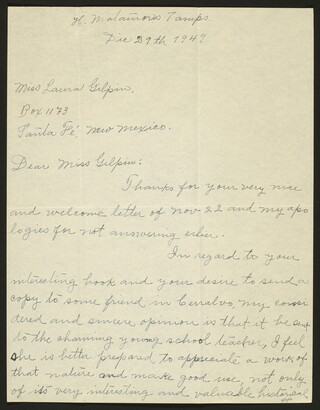 H. Matamoros Tamps.
Dic 29th 1947
Miss Laura Gilpin,
Box 1173
Santa Fé, New Mexico.
Dear Miss Gilpin:
Thanks for your very nice
and welcome letter of Nov. 22 and my apo
logies for not answering erlier.
In regard to your
interesting book and your desire to send a
copy to some friend in Cerralvo, my consi
dered and sincere opinion is that it be sent
to the charming young school teacher, I feel
she is better prepared to appreciate a work of
that nature and make good use, not only
of its very interesting and valuable historical